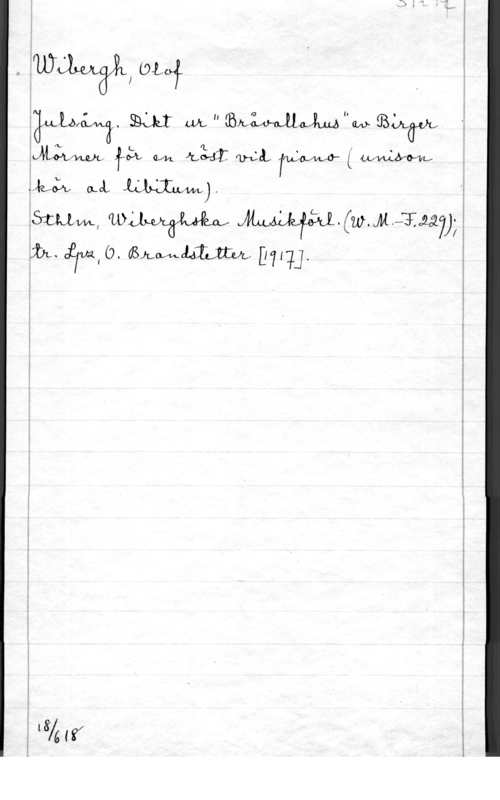 Wibergh, Olof
Julsång. Dikt ur "Bråvallahus" av Birger
Mörner för en röst vid piano (unison
kör ad libitum).
Sthlm, Wiberghska Musikförl. (W.M.-F.229);
tr. Lpz, O. Brandstetter [1917].
18/6 18